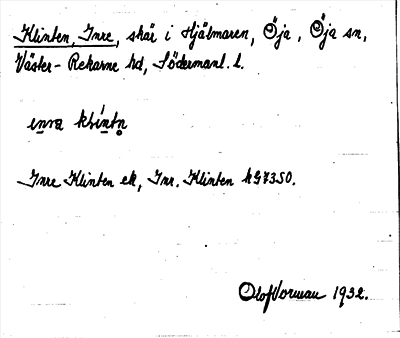 Klinten, Inre, skär i Hjälmaren, Öja, Öja sn,
Väster-Rekarne hd, Södermanl. l.
Inre Klinten ek, Inr. Klinten k G7350.
Olof Vorneau 1932.